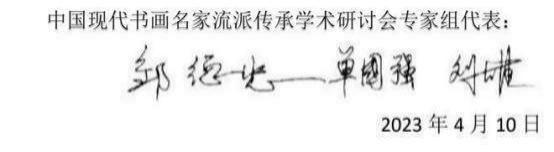 中国现代书画名家流派传承学术研讨会专家组代表：
单国强
2023 年 4 月 10 日